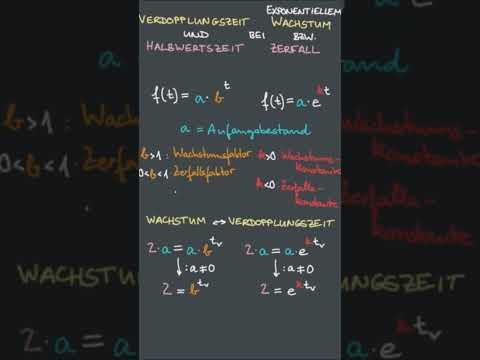 VERDOPPLUNGSZEIT UND HALBWERTSZEIT
BEI
EXPONENTIELLEM WACHSTUM BZW. ZERFALL
f(t) = a · b^t
f(t) = a · e^{kt}
a = Anfangsbestand
b>1 : Wachstumsfaktor
0<b<1 : Zerfallsfaktor
k>0 Wachstumskonstante
k<0 Zerfallskonstante
WACHSTUM ↔ VERDOPPLUNGSZEIT
2·a = a·b^{t_v}
↓ :a≠0
2 = b^{t_v}
2·a = a·e^{k t_v}
↓ :a≠0
2 = e^{k t_v}